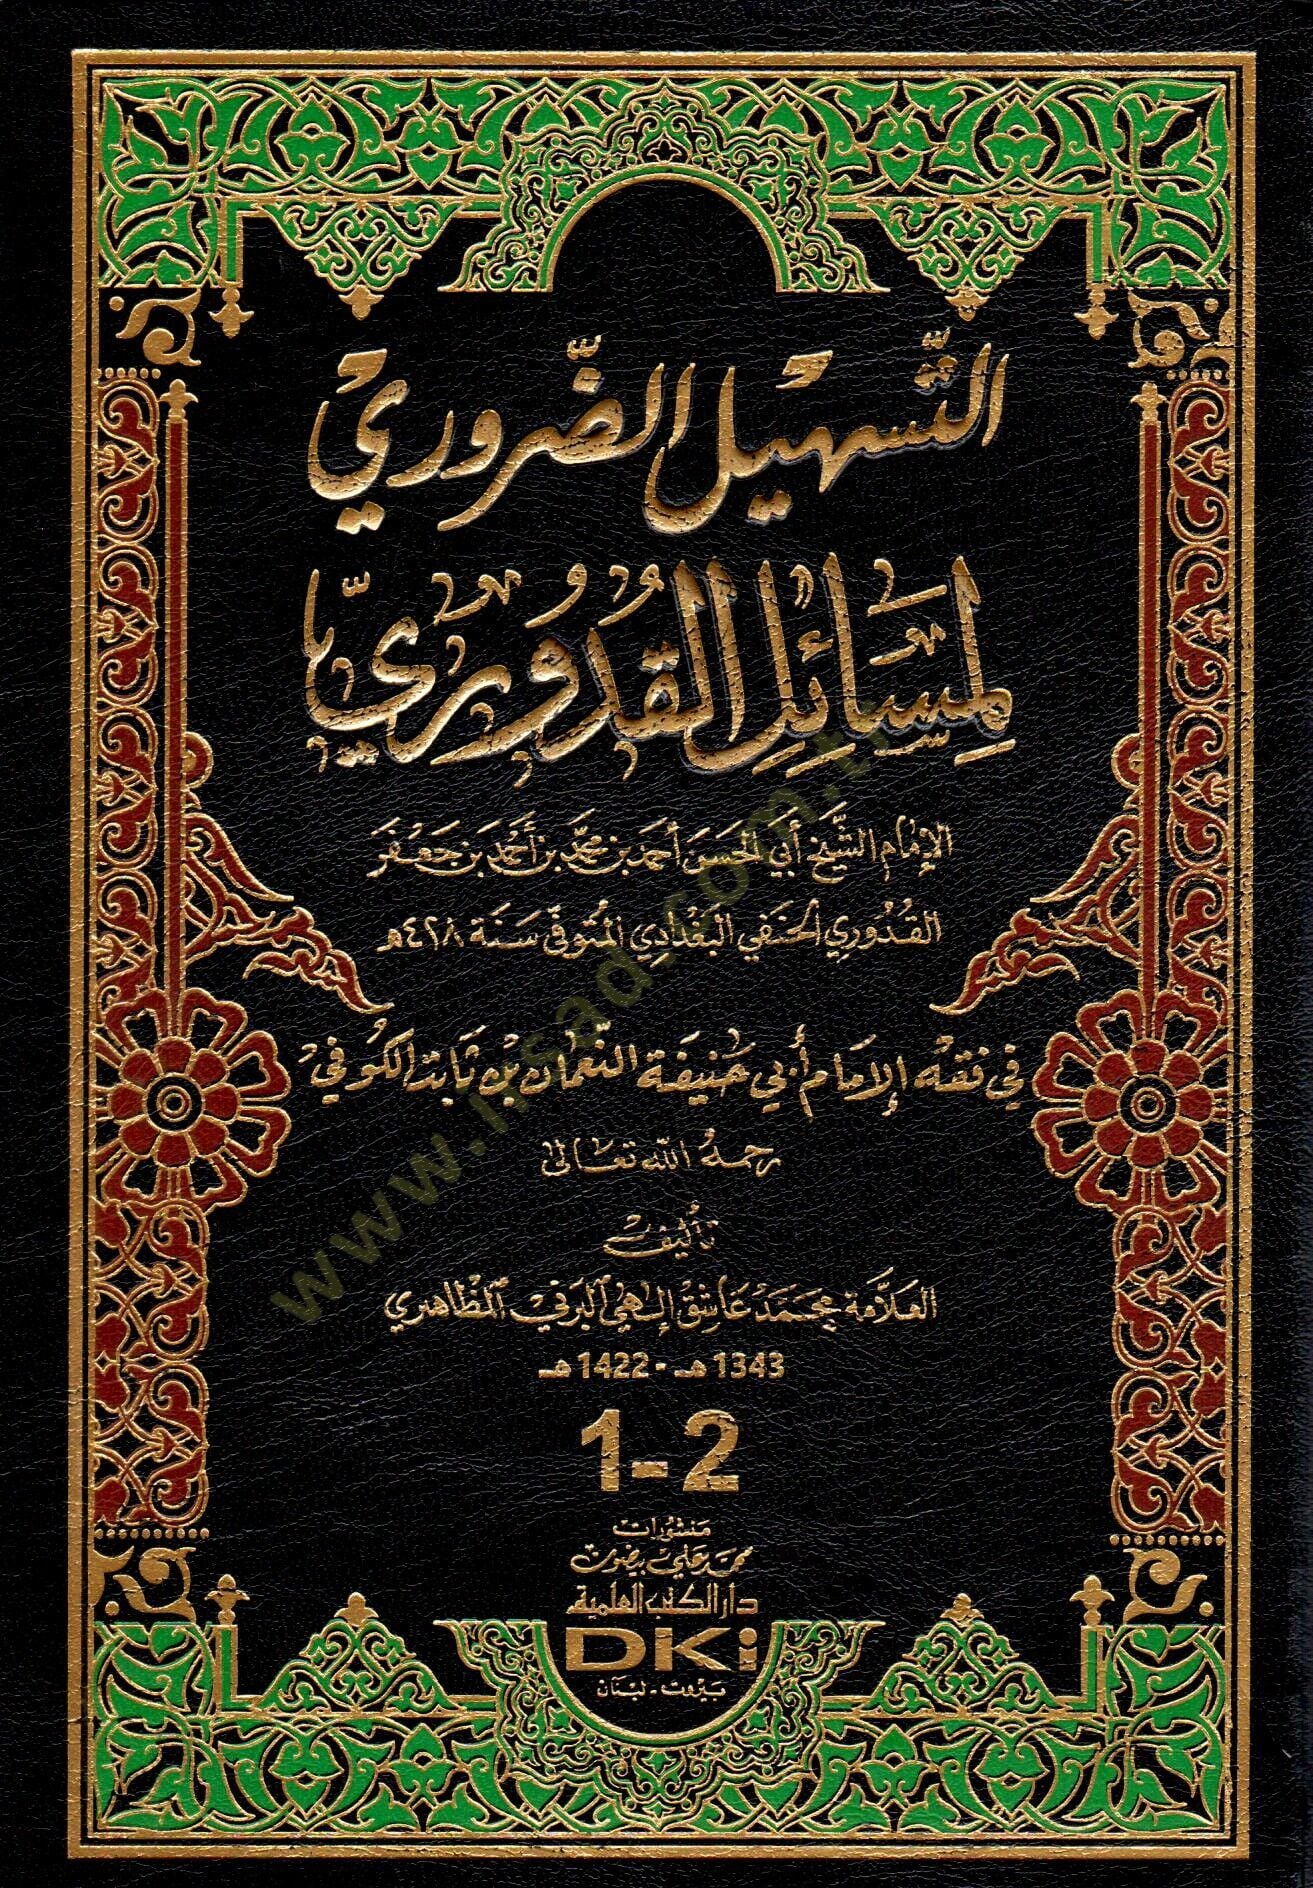 التسهيل الضّروري
لمسائل القدوريّ
الإمام الشّيخ أبي الحسن أحمد بن محمّد بن أحمد بن جعفر
القدوري الحنفي البغدادي المتوفى سنة ٤٢٨هـ
في فقه الإمام أبي حنيفة النّعمان بن ثابت الكوفي
رحمه الله تعالى
تأليف
العلّامة محمد عاشق إلهي البرني المظاهري
1343 هـ - 1422 هـ
1-2
منشورات
محمد علي بيضون
دار الكتب العلمية
DKi
بيروت - لبنان
www.irsad.com.tr